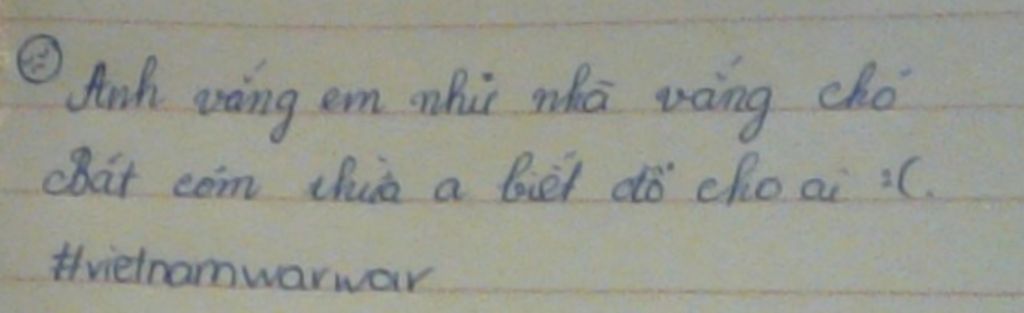 Anh vắng em như nhà vắng chó
Bát cơm thừa a biết đổ cho ai :(.
#vietnamwarwar